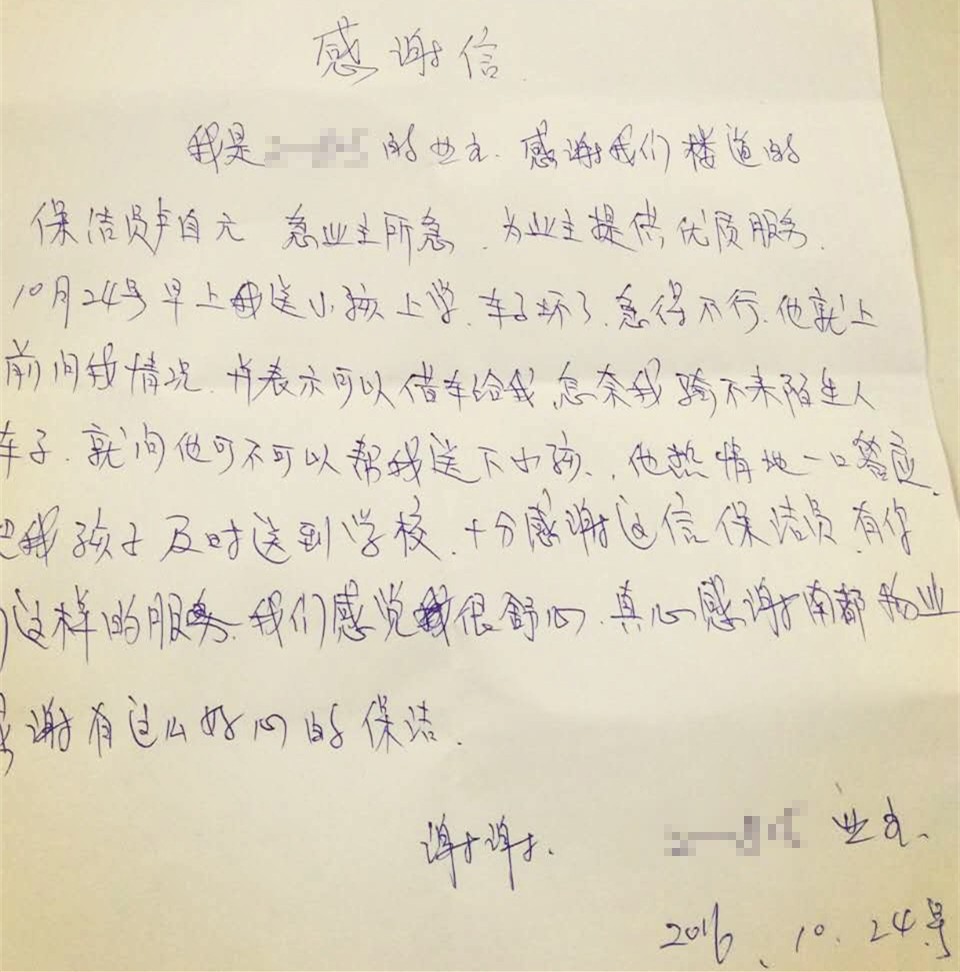 感谢信.
我是 的业主.感谢我们楼道的
保洁员卢自元 急业主所急.为业主提供优质服务.
10月24号早上我送小孩上学.车子坏了.急得不行.他就上
前问我情况.并表示可以借车给我,怎奈我骑不来陌生人
车子.就问他可不可以帮我送下小孩.他热情地一口答应.
把我孩子及时送到学校.十分感谢这信保洁员.有你
们这样的服务.我们感觉很舒心.真心感谢南都物业
感谢有这么好心的保洁.
谢谢.
业主.
2016.10.24号